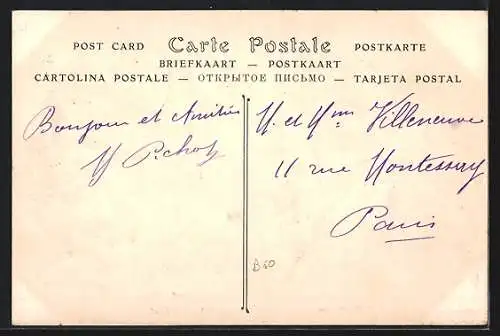 POST CARD Carte Postale POSTKARTE
BRIEFKAART — POSTKAART
CARTOLINA POSTALE — ОТКРЫТОЕ ПИСЬМО — TARJETA POSTAL
Bonjour et Amitiés
M. et Mme Villeneuve
11 rue Montessuy
Paris
B60